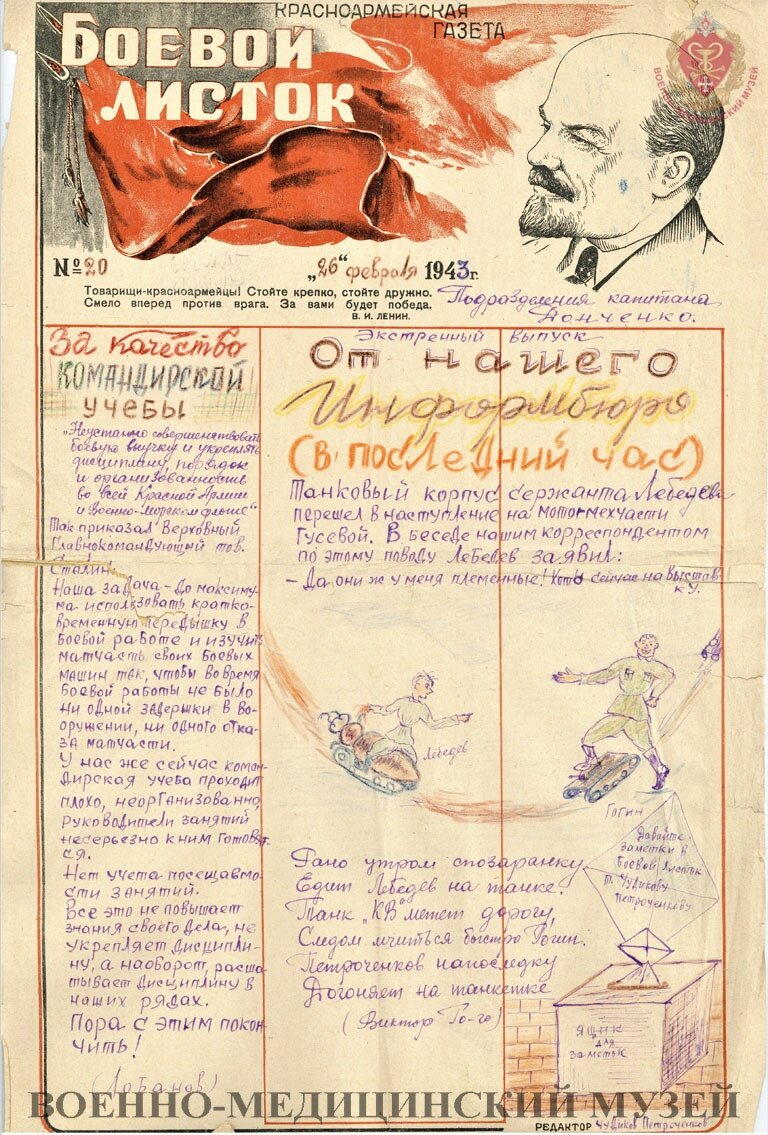 КРАСНОАРМЕЙСКАЯ
ГАЗЕТА
БОЕВОЙ
ЛИСТОК
ВОЕННО-МЕДИЦИНСКИЙ МУЗЕЙ
№ 20
„26“ февраля 1943 г.
Товарищи-красноармейцы! Стойте крепко, стойте дружно.
Смело вперед против врага. За вами будет победа.
В. И. ЛЕНИН.
Подразделения капитана
Донченко.
За качество
КОМАНДИРСКОЙ
УЧЕБЫ
„Неустанно совершенствовать
боевую выучку и укреплять
дисциплину, порядок
и организованность
во всей Красной Армии
и Военно-Морском флоте“
Так приказал Верховный
Главнокомандующий тов.
Сталин.
Наша задача - до максиму-
ма использовать кратко-
временную передышку в
боевой работе и изучить
матчасть своих боевых
машин так, чтобы во время
боевой работы не было
ни одной задержки в во-
оружении, ни одного отка-
за матчасти.
У нас же сейчас коман-
дирская учеба проходит
плохо, неорганизованно,
руководители занятий
несерьезно к ним готовят-
ся.
Нет учета посещаемо-
сти занятий.
Все это не повышает
знания своего дела, не
укрепляет дисципли-
ну, а наоборот, расша-
тывает дисциплину в
наших рядах.
Пора с этим покон
чить!
(Лобанов)
Экстренный выпуск
От нашего
Информбюро
(В последний час)
Танковый корпус сержанта Лебедева
перешел в наступление на мотомехчасти
Гусевой. В беседе нашим корреспондентом
по этому поводу Лебедев заявил:
- Да они ж у меня племенные! Хоть сейчас на выстав-
ку.
Лебедев
Гогин
Рано утром спозаранку
Едит Лебедев на танке.
Танк „КВ“ метет дорогу,
Следом мчиться быстро Гогин.
Петроченков напоследку
Догоняет на танкетке
(Виктор Го-го)
Давайте
заметки в
Боевой Листок
т. Чудикову
Петроченкову
ЯЩИК
для
заметок
РЕДАКТОР Чудиков Петроченков
ВОЕННО-МЕДИЦИНСКИЙ МУЗЕЙ